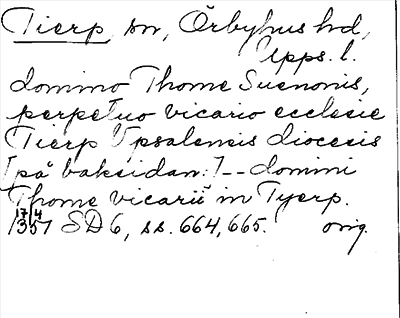 Tierp, sn, Örbyhus hd,
Upps. l.
domino Thome Suenonis,
perpetuo vicario ecclesie
Tierp Vpsalensis diocesis
[på baksidan:] -- domini
Thome vicarii in Tyerp.
17/4
1357 SD 6, ss. 664, 665. orig.